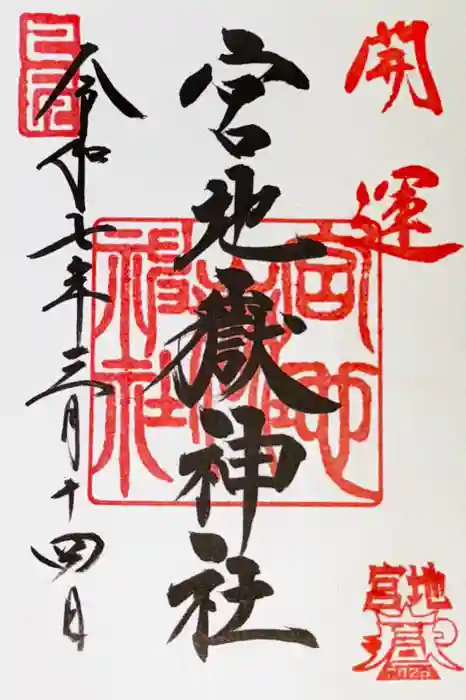 開運
宮地嶽神社
宮地嶽神社
令和七年三月十四日
乙巳
宮地
嶽
2025